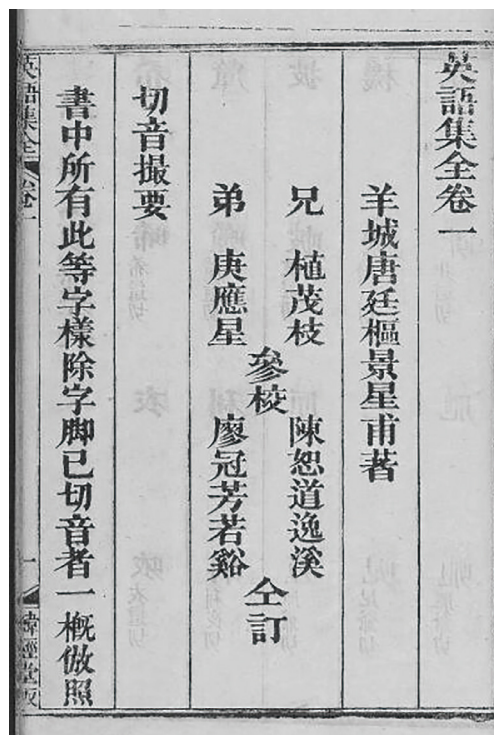 英語集全卷一
羊城唐廷樞景星甫著
兄 植茂枝
弟 庚應星
參校
陳恕道逸溪
廖冠芳若谿
仝訂
切音撮要
書中所有此等字樣除字脚已切音者一槪倣照
英語集全
卷一
一
緯經堂版